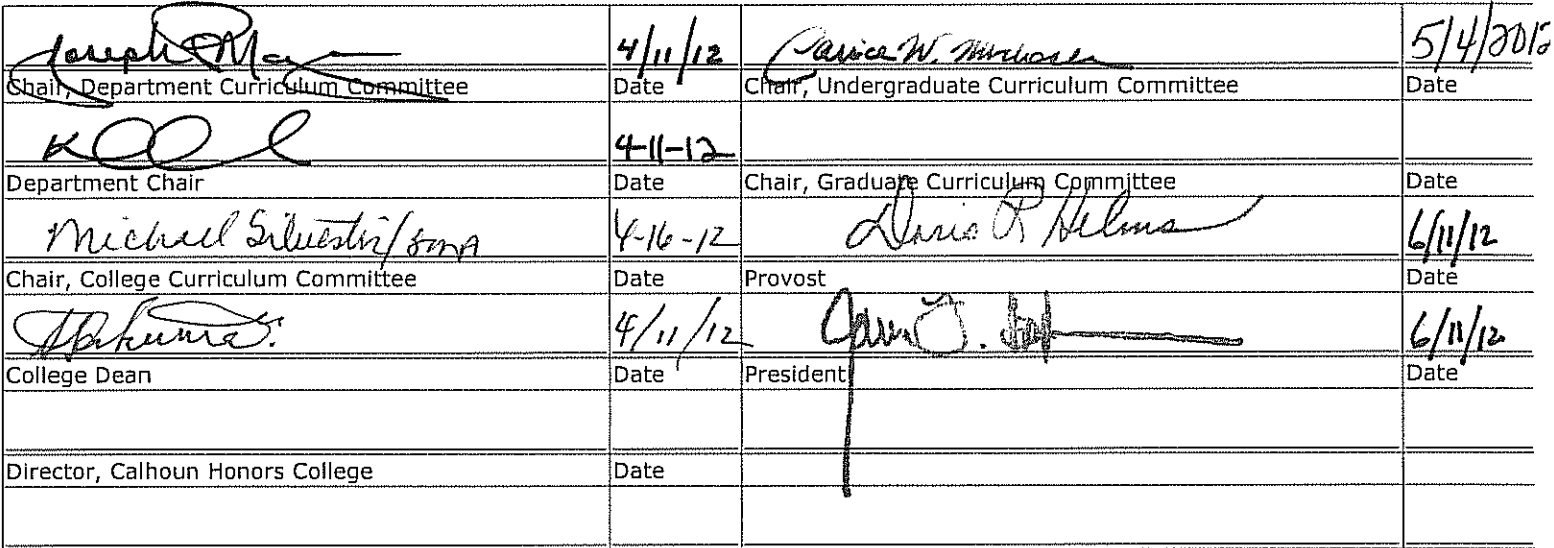 Joseph P Ma 4/11/12 Janice W. Murdoch 5/4/2012
Chair, Department Curriculum Committee Date Chair, Undergraduate Curriculum Committee Date
4-11-12
Department Chair Date Chair, Graduate Curriculum Committee Date
Michael Silvestri/ 4-16-12 Doris R Helms 6/11/12
Chair, College Curriculum Committee Date Provost Date
4/11/12 6/11/12
College Dean Date President Date
Director, Calhoun Honors College Date